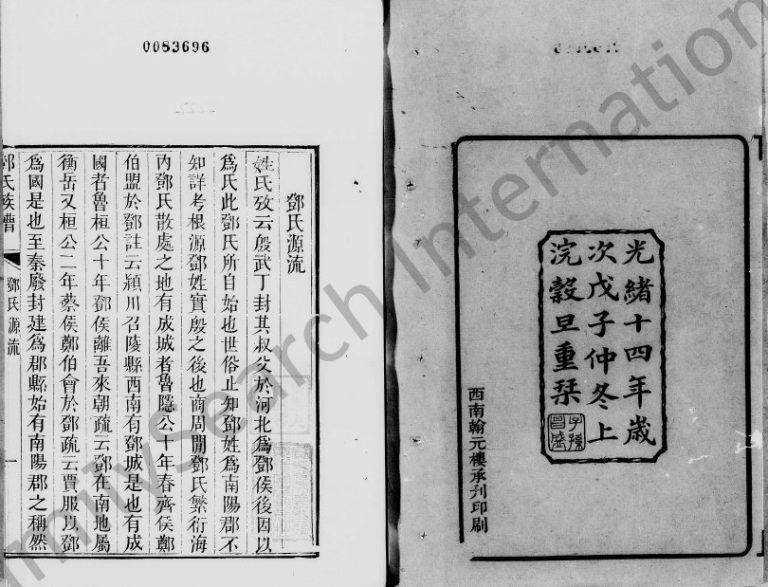 光緒十四年歲
次戊子仲冬上
浣穀旦重栞
子孫
昌盛
西南翰元樓承刋印刷
0083696
鄧氏源流
姓氏攷云殷武丁封其叔父於河北爲鄧侯後因以
爲氏此鄧氏所自始也世俗止知鄧姓爲南陽郡不
知詳考根源鄧姓實殷之後也商周閒鄧氏繁衍海
內鄧氏散處之地有成城者魯隱公十年春齊侯鄭
伯盟於鄧註云潁川召陵縣西南有鄧城是也有成
國者魯桓公十年鄧侯離吾來朝疏云鄧在南地屬
衡岳又桓公二年蔡侯鄭伯會於鄧疏云賈服以鄧
爲國是也至秦廢封建爲郡縣始有南陽郡之稱然
鄧氏族譜
鄧氏源流
一
FamilySearch International